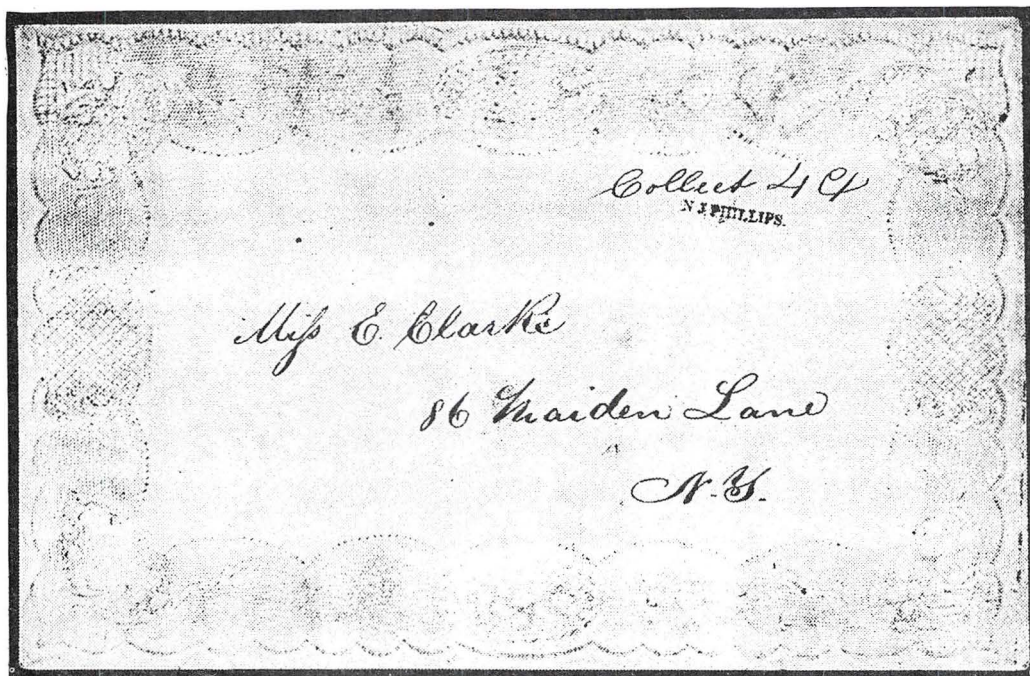 Collect 4 Ct
N. J. PHILLIPS.
Miſs E. Clarke
86 Maiden Lane
N.Y.